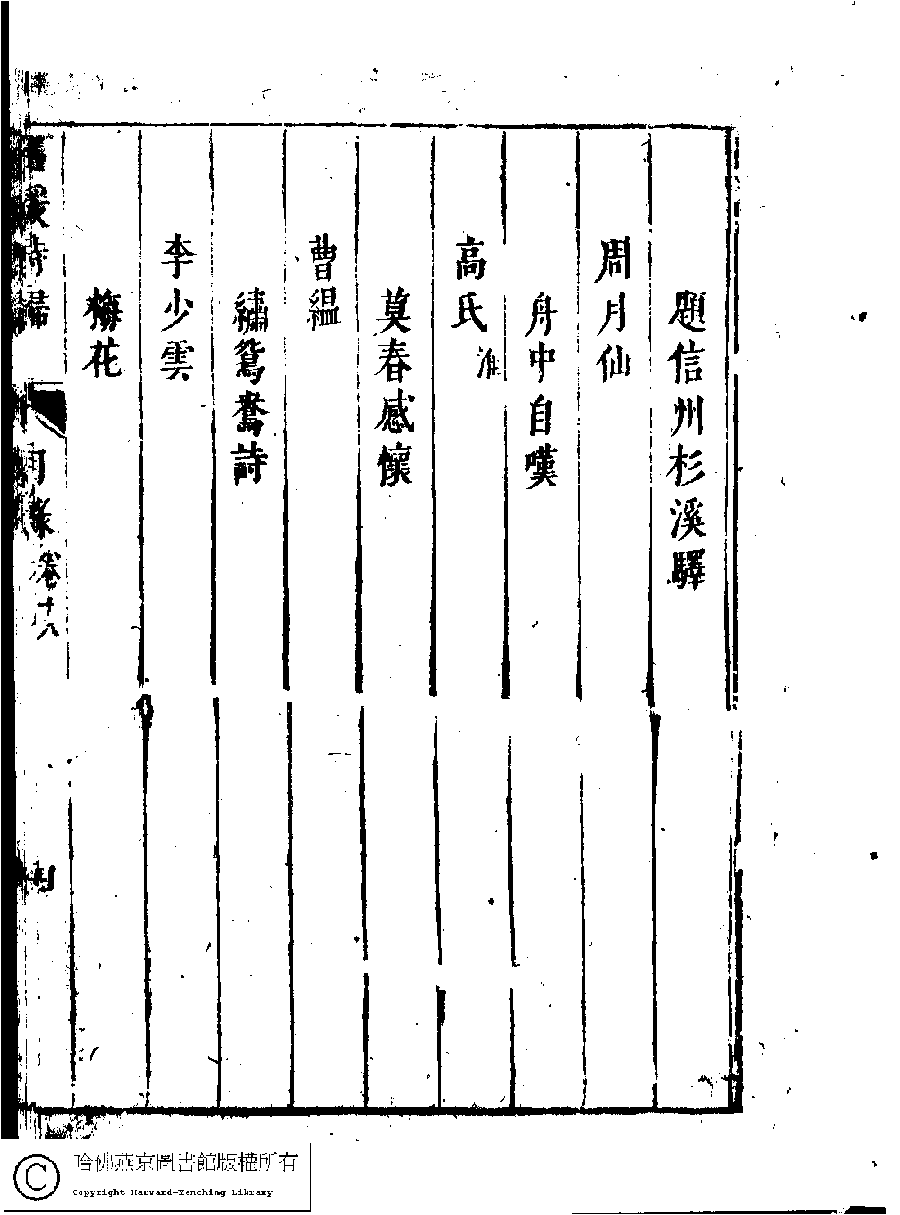 題信州杉溪驛
周月仙
舟中自嘆
高氏 淮
莫春感懷
曹縕
繡鴛鴦詩
李少雲
梅花
名媛詩歸
目錄卷十八
哈佛燕京圖書館版權所有
Copyright Harvard-Yenching Library